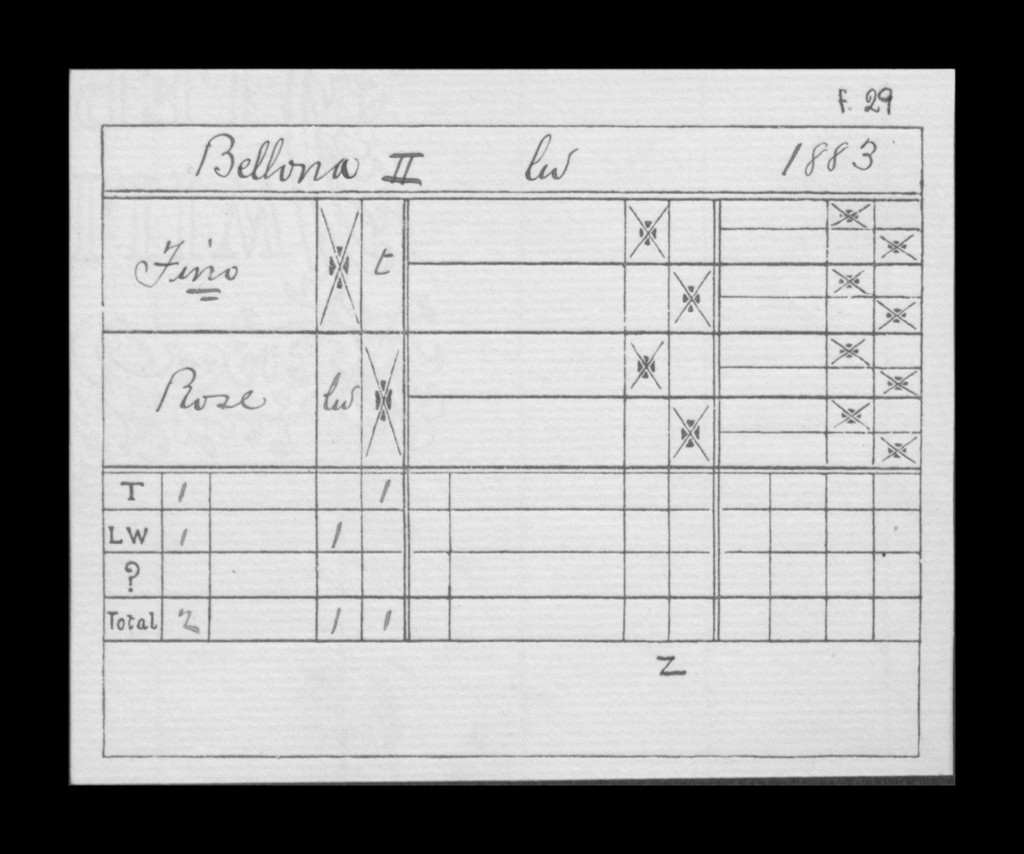 F. 29
Bellona II lw 1883
Fino t
Rose lw
T 1 1
LW 1 1
?
Total 2 1 1
Z